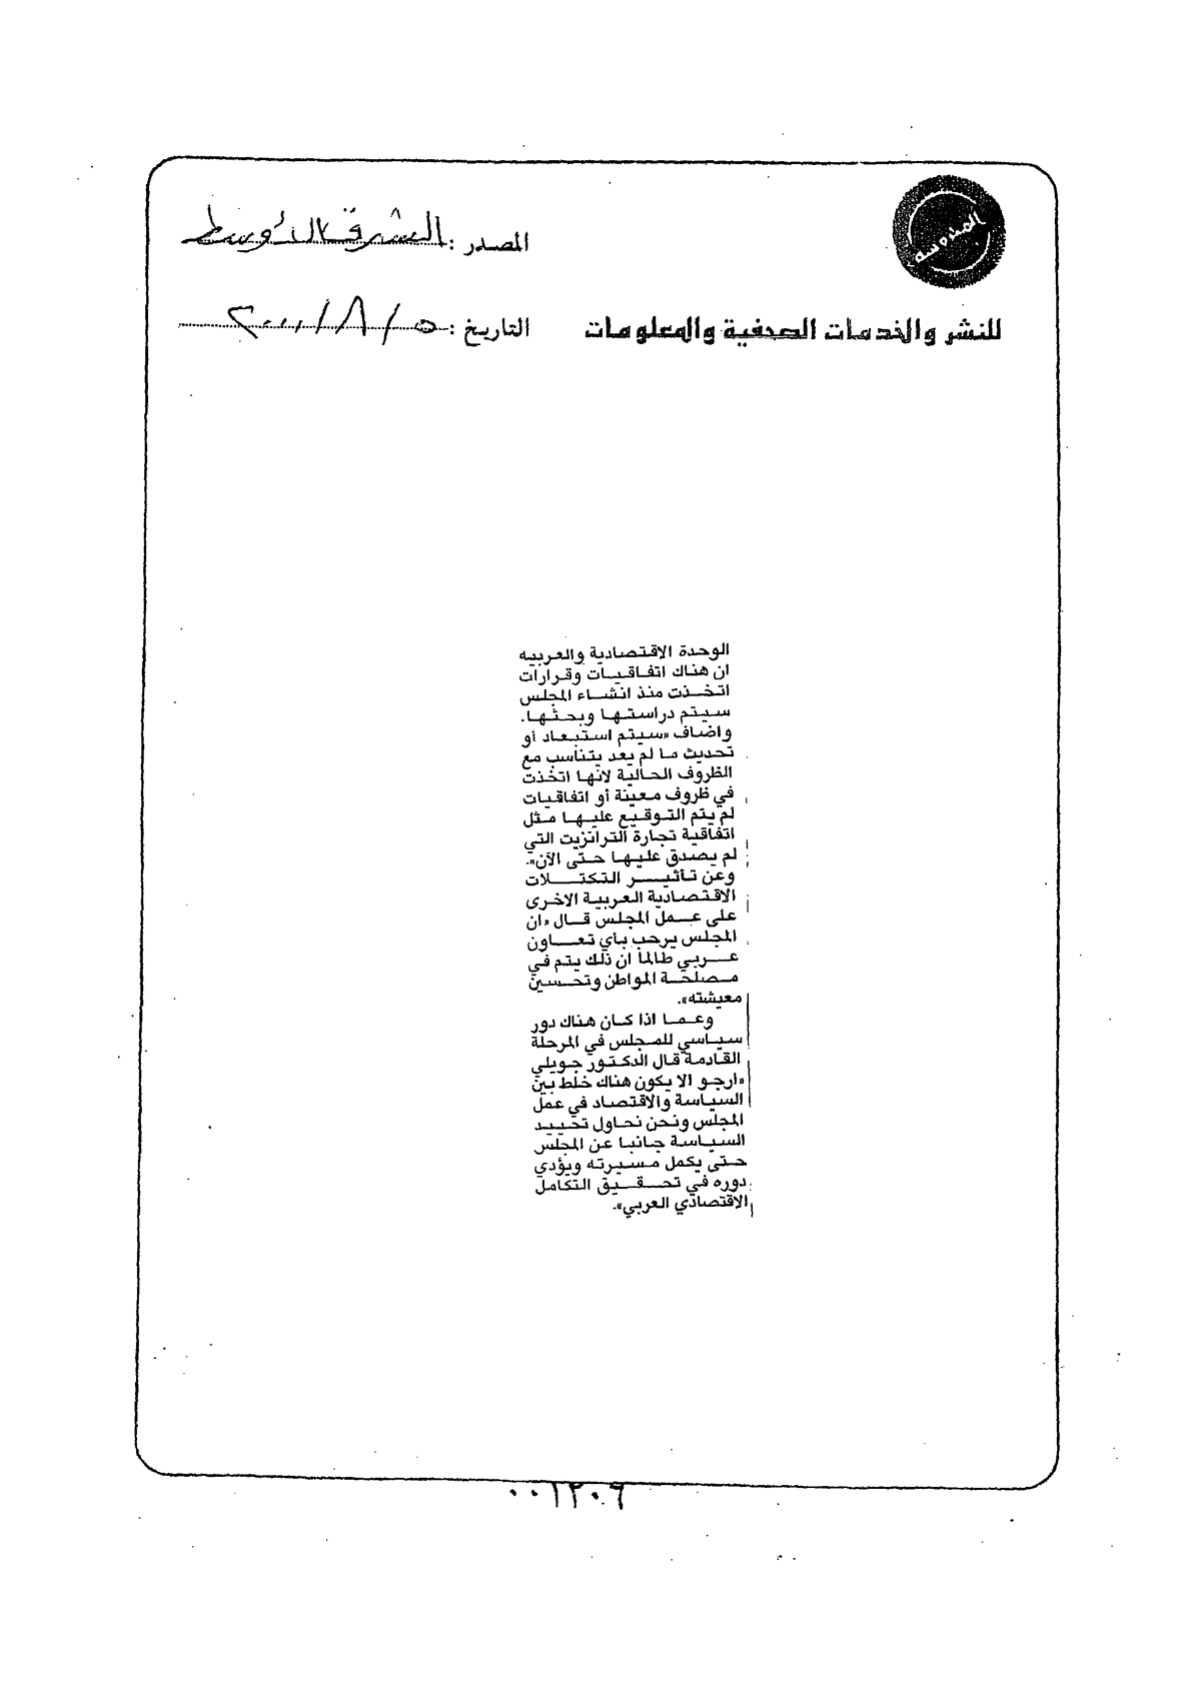 المصدر : الشرق الأوسط
التاريخ : ٥ / ٨ / ٢٠٠٠
للنشر والخدمات الصحفية والمعلومات
الوحدة الاقتصادية والعربيه
ان هناك اتفاقيات وقرارات
اتخذت منذ انشاء المجلس
سيتم دراستها وبحثها.
واضاف «سيتم استبعاد أو
تحديث ما لم يعد يتناسب مع
الظروف الحالية لانها اتخذت
في ظروف معينة أو اتفاقيات
لم يتم التوقيع عليها مثل
اتفاقية تجارة الترانزيت التي
لم يصدق عليها حتى الآن».
وعن تأثير التكتلات
الاقتصادية العربية الاخرى
على عمل المجلس قال «ان
المجلس يرحب بأي تعاون
عربي طالما ان ذلك يتم في
مصلحة المواطن وتحسين
معيشته».
وعما اذا كان هناك دور
سياسي للمجلس في المرحلة
القادمة قال الدكتور جويلي
«ارجو الا يكون هناك خلط بين
السياسة والاقتصاد في عمل
المجلس ونحن نحاول تحييد
السياسة جانبا عن المجلس
حتى يكمل مسيرته ويؤدي
دوره في تحقيق التكامل
الاقتصادي العربي».
٠٠١٢٠٦